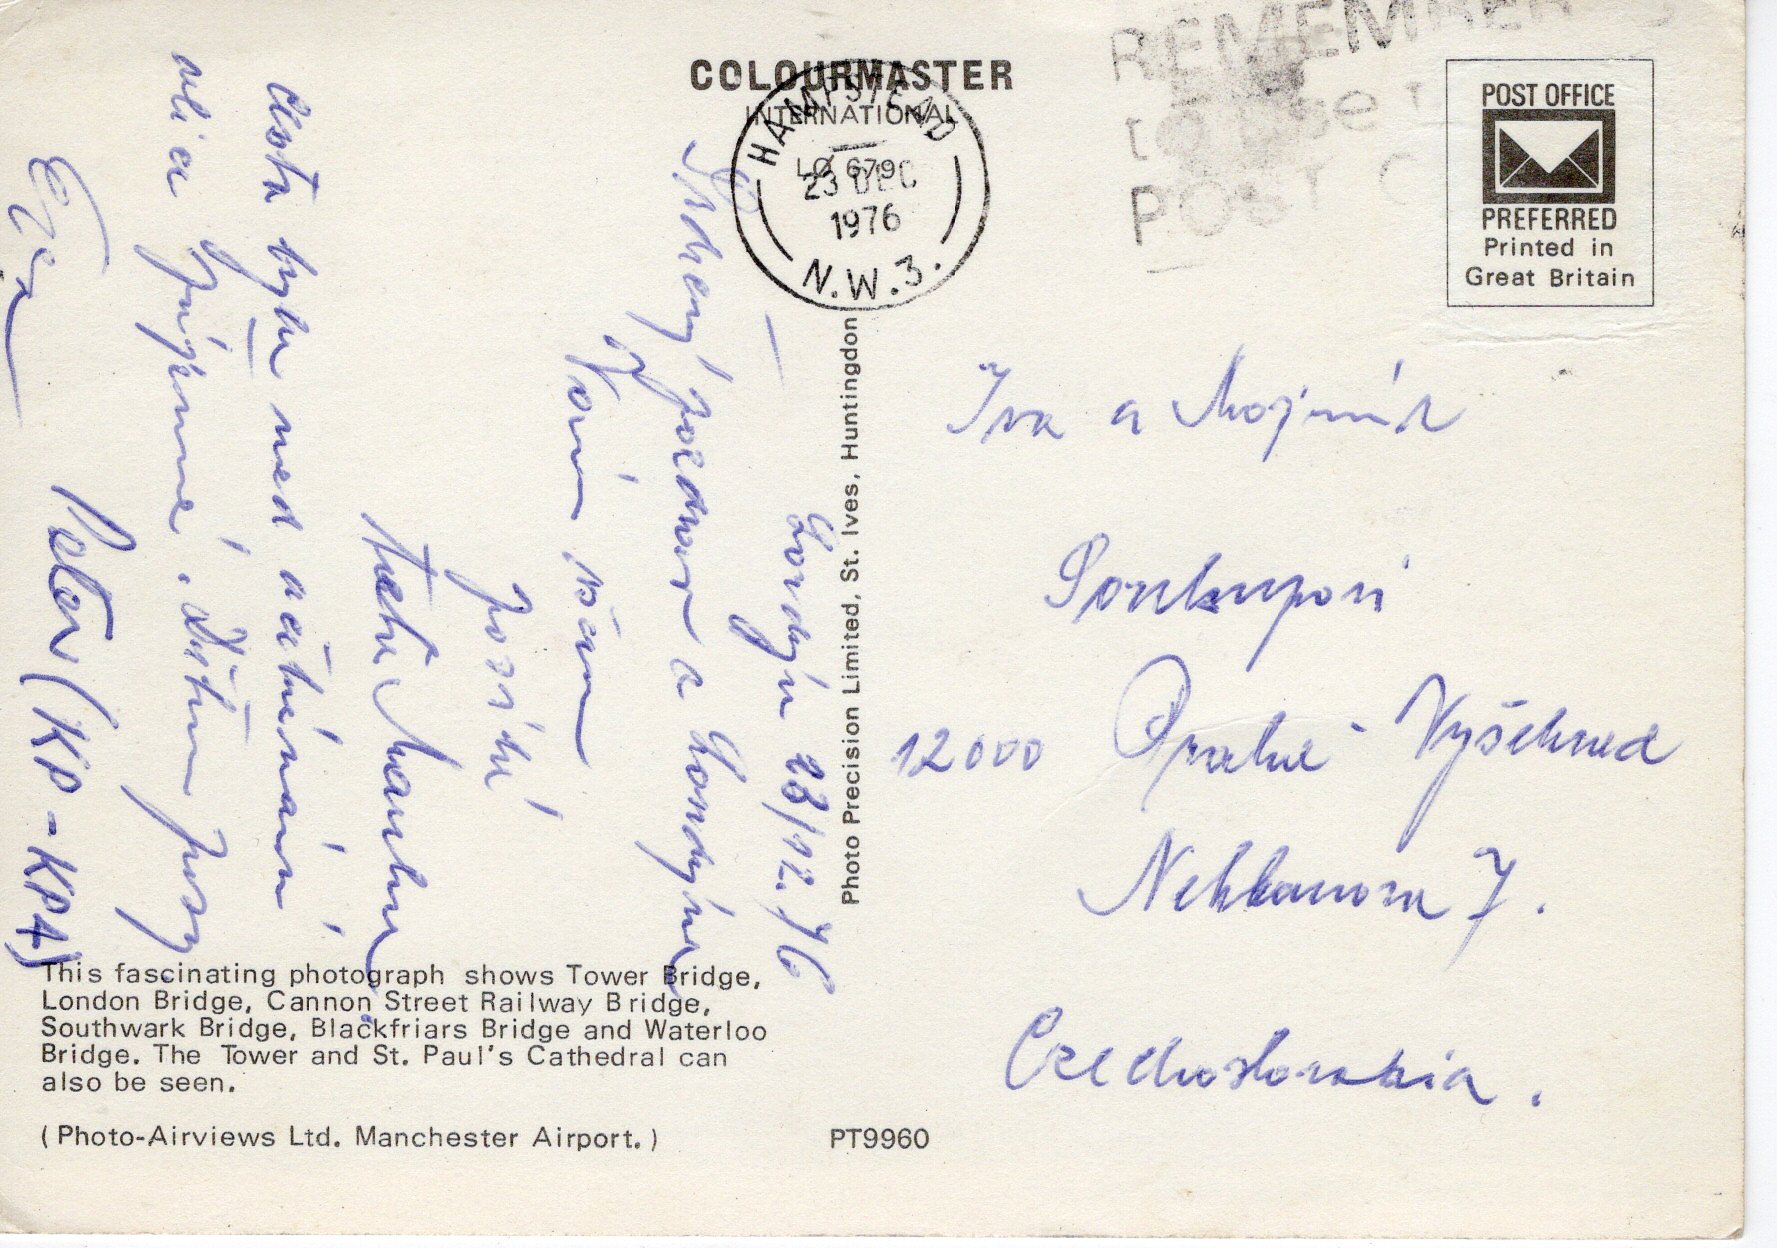 COLOURMASTER
INTERNATIONAL
HAMPSTEAD
LO 679
23 DEC
1976
N.W.3.
REMEMBER
to use
POST
POST OFFICE
PREFERRED
Printed in
Great Britain
Photo Precision Limited, St. Ives, Huntingdon
Londýn 23/12.76
pozdrav z Londýna
Vám všem
posílá
teta
byla nad
Dětem pusy
Eva
Peter (KP-KPA)
Iva a Mojmír
Soukupovi
12000 Praha - Vyšehrad
Neklanova 7.
Czechoslovakia.
This fascinating photograph shows Tower Bridge,
London Bridge, Cannon Street Railway Bridge,
Southwark Bridge, Blackfriars Bridge and Waterloo
Bridge. The Tower and St. Paul's Cathedral can
also be seen.
(Photo-Airviews Ltd. Manchester Airport.)
PT9960